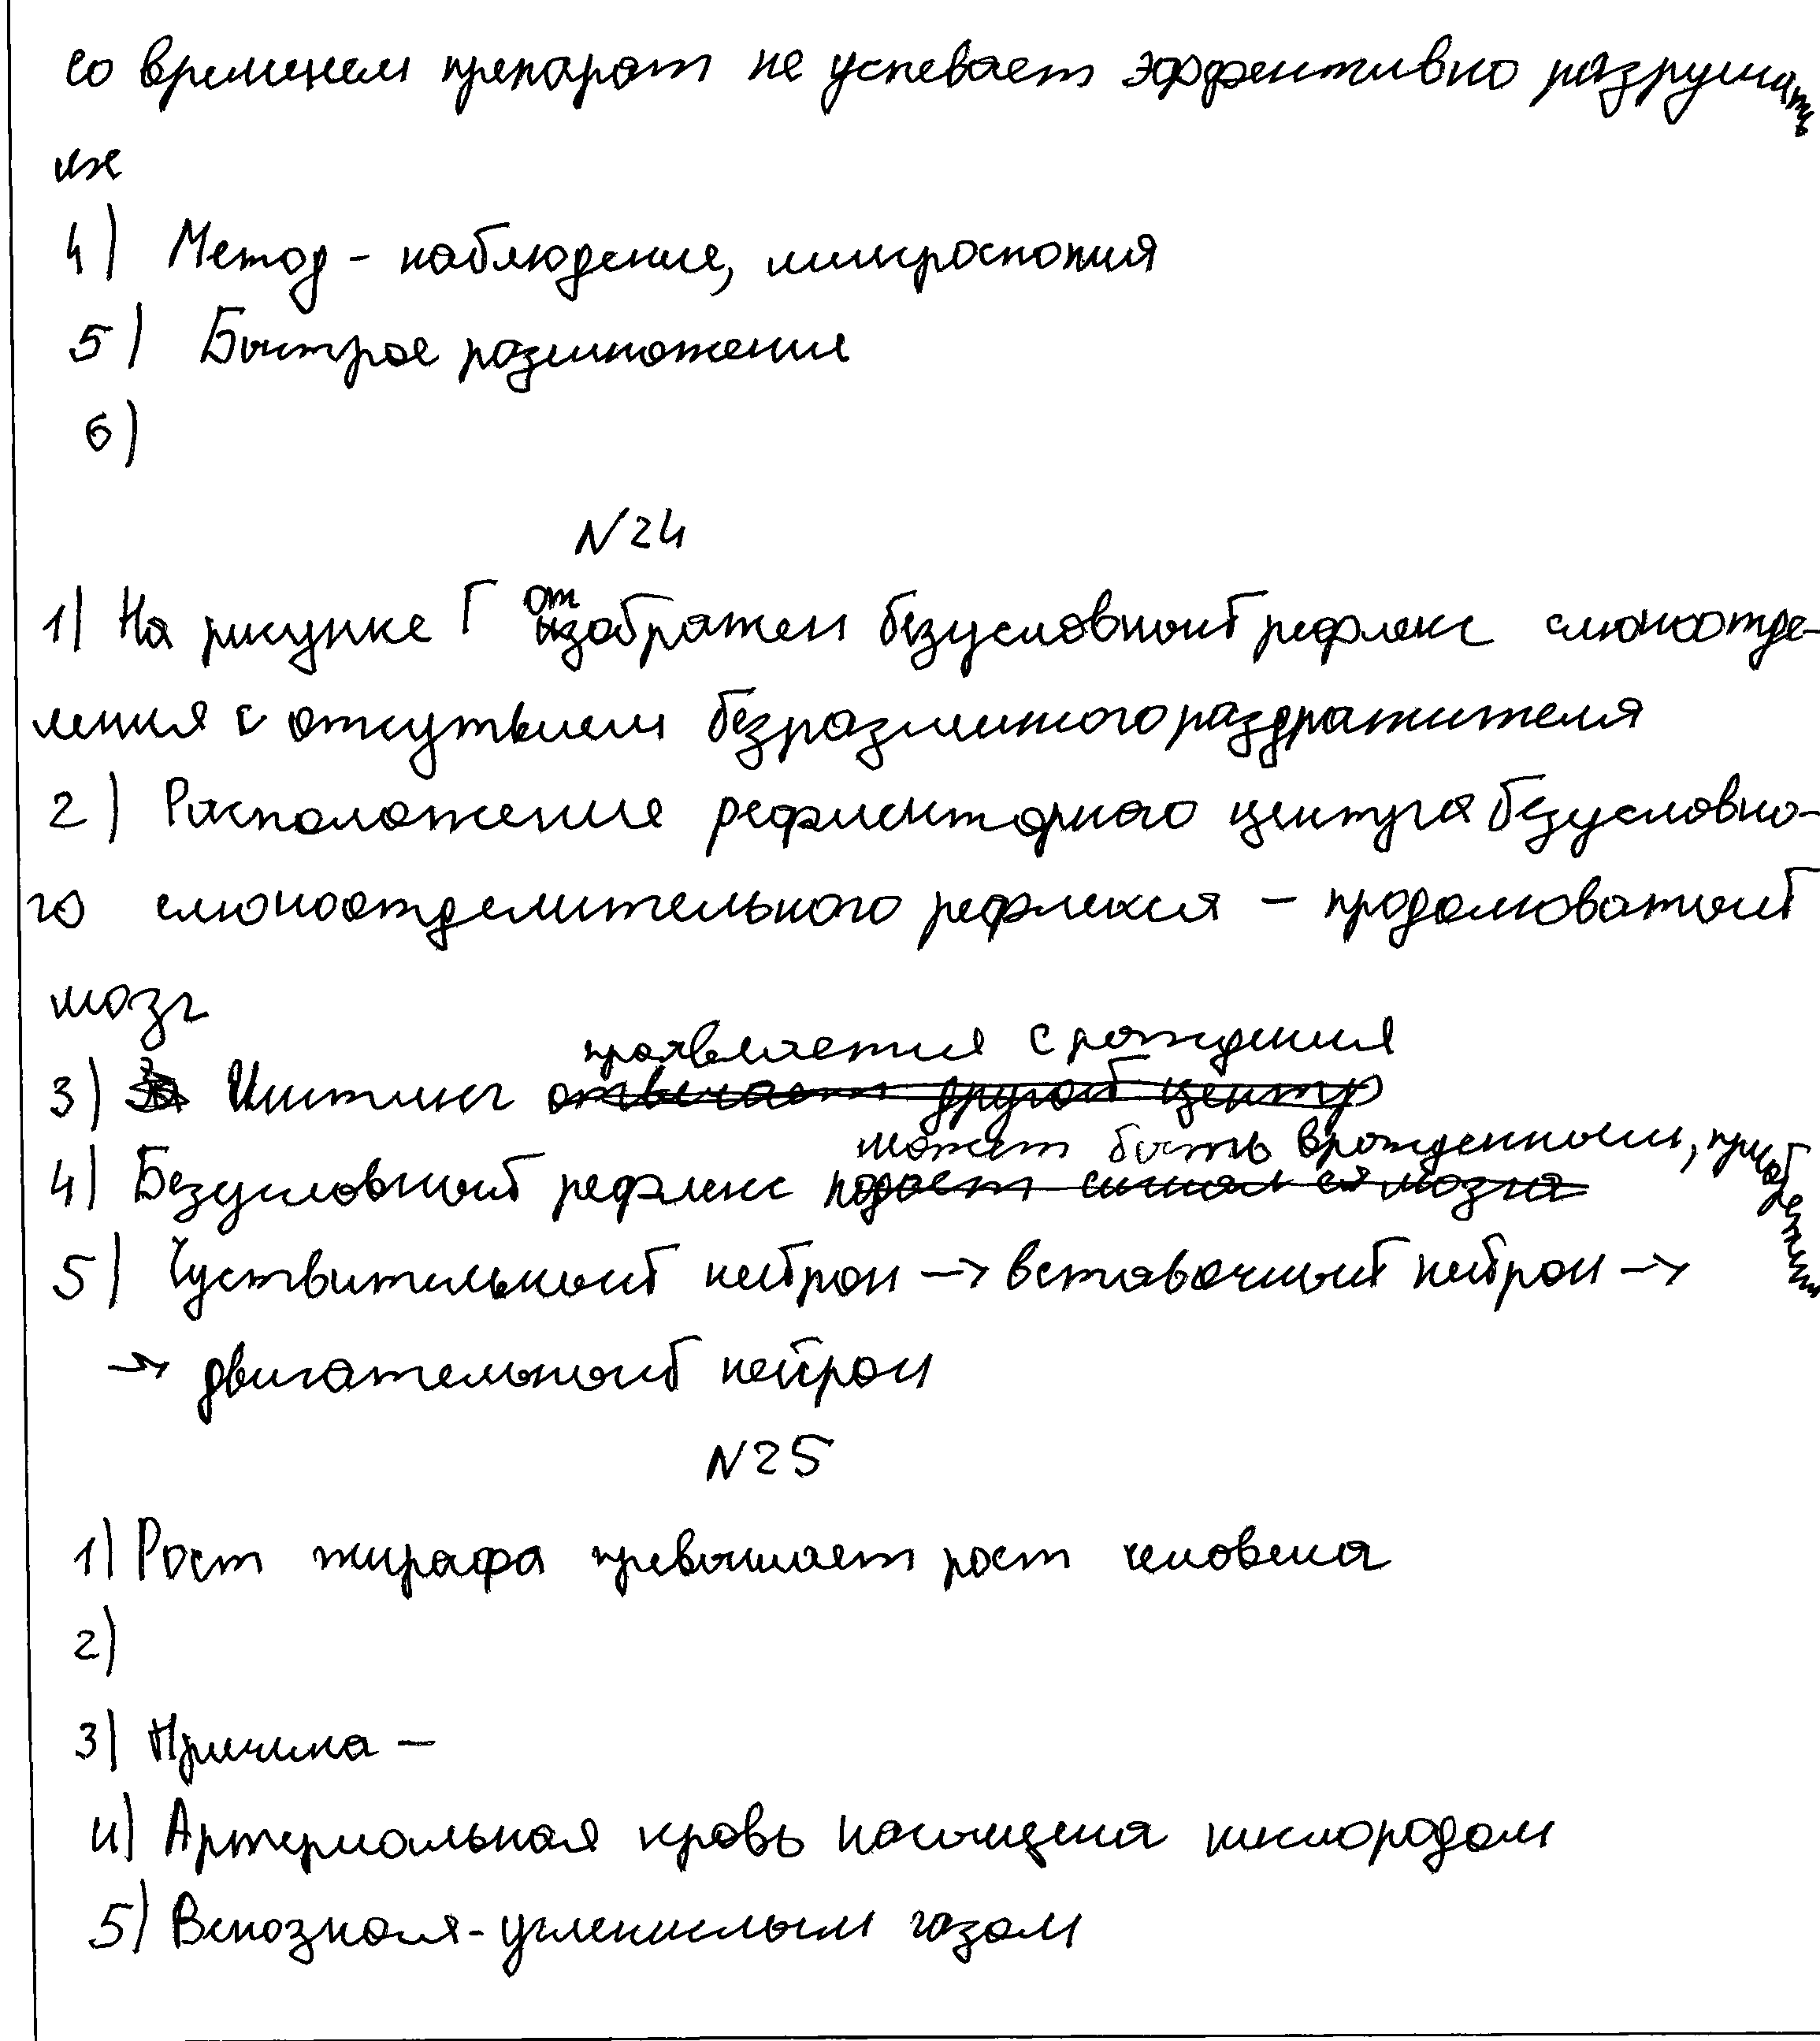 со временем препарат не успевает эффективно разрушать
их
4) Метод - наблюдение, микроскопия
5) Быстрое размножение
6)
N24
1) На рисунке Г отображен безусловный рефлекс слюноотде-
ления с отсутвием безразличного раздражителя
2) Расположение рефлекторного центра безусловно-
го слюноотделительного рефлекса - продолговатый
мозг
проявляется с рождения
3) Инстинкт отвечает другой центр
может быть врожденным, приобретным
4) Безусловный рефлекс подает сигнал из мозга
5) Чуствительный нейрон → вставочный нейрон →
→ двигательный нейрон
N25
1) Рост жирафа превышает рост человека
2)
3) Причина -
4) Артериальная кровь насыщена кислородом
5) Венозная - углекислым газом